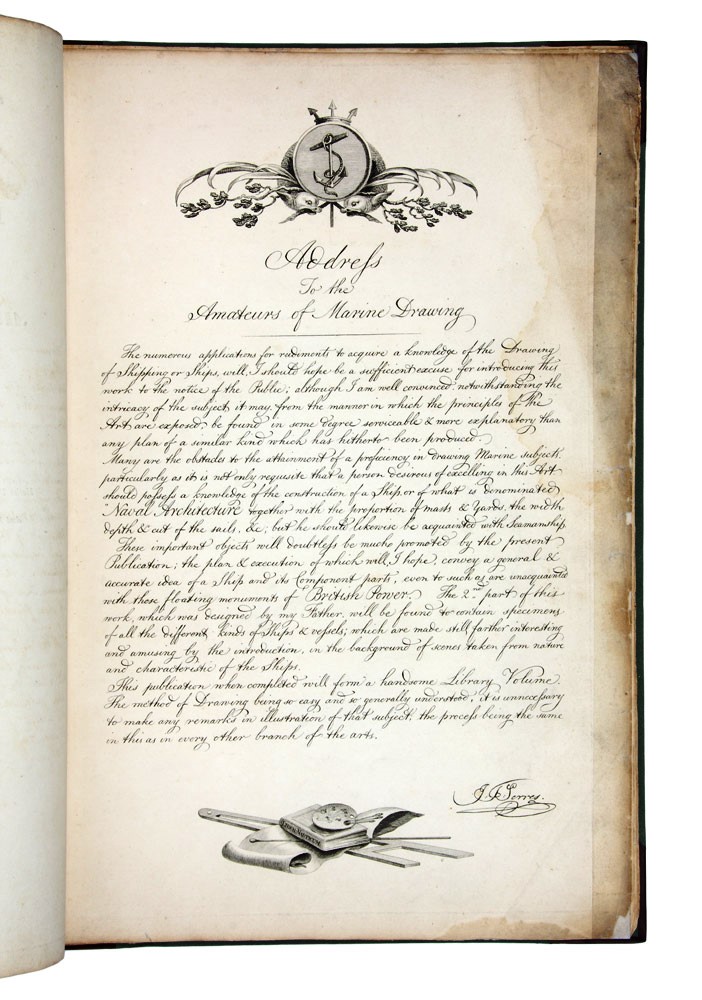 Address
To the
Amateurs of Marine Drawing
The numerous applications for rudiments to acquire a knowledge of the Drawing
of Shipping or Ships, will, I should hope be a sufficient excuse for introducing this
work to the notice of the Public; although I am well convinced, notwithstanding the
intricacy of the subject it may, from the manner in which the principles of the
Art are exposed, be found in some degree serviceable & more explanatory than
any plan of a similar kind which has hitherto been produced.
Many are the obstacles to the attainment of a proficiency in drawing Marine subjects,
particularly as it is not only requisite that a person desirous of excelling in this Art
should possess a knowledge of the construction of a Ship, or of what is denominated
Naval Architecture together with the proportion of masts & yards, the width
depth & cut of the sails, &c; but he should likewise be acquainted with Seamanship.
These important objects will doubtless be much promoted by the present
Publication; the plan & execution of which will, I hope, convey a general &
accurate idea of a Ship and its Component parts, even to such as are unacquainted
with those floating monuments of British Power. The 2nd part of this
work, which was designed by my Father, will be found to contain specimens
of all the different kinds of Ships & vessels; which are made still farther interesting
and amusing by the introduction, in the background of scenes taken from nature
and characteristic of the Ships.
This publication when completed will form a handsome Library Volume.
The method of Drawing being so easy and so generally understood, it is unnecessary
to make any remarks in illustration of that subject, the process being the same
in this as in every other branch of the arts.
J. T. Serres.